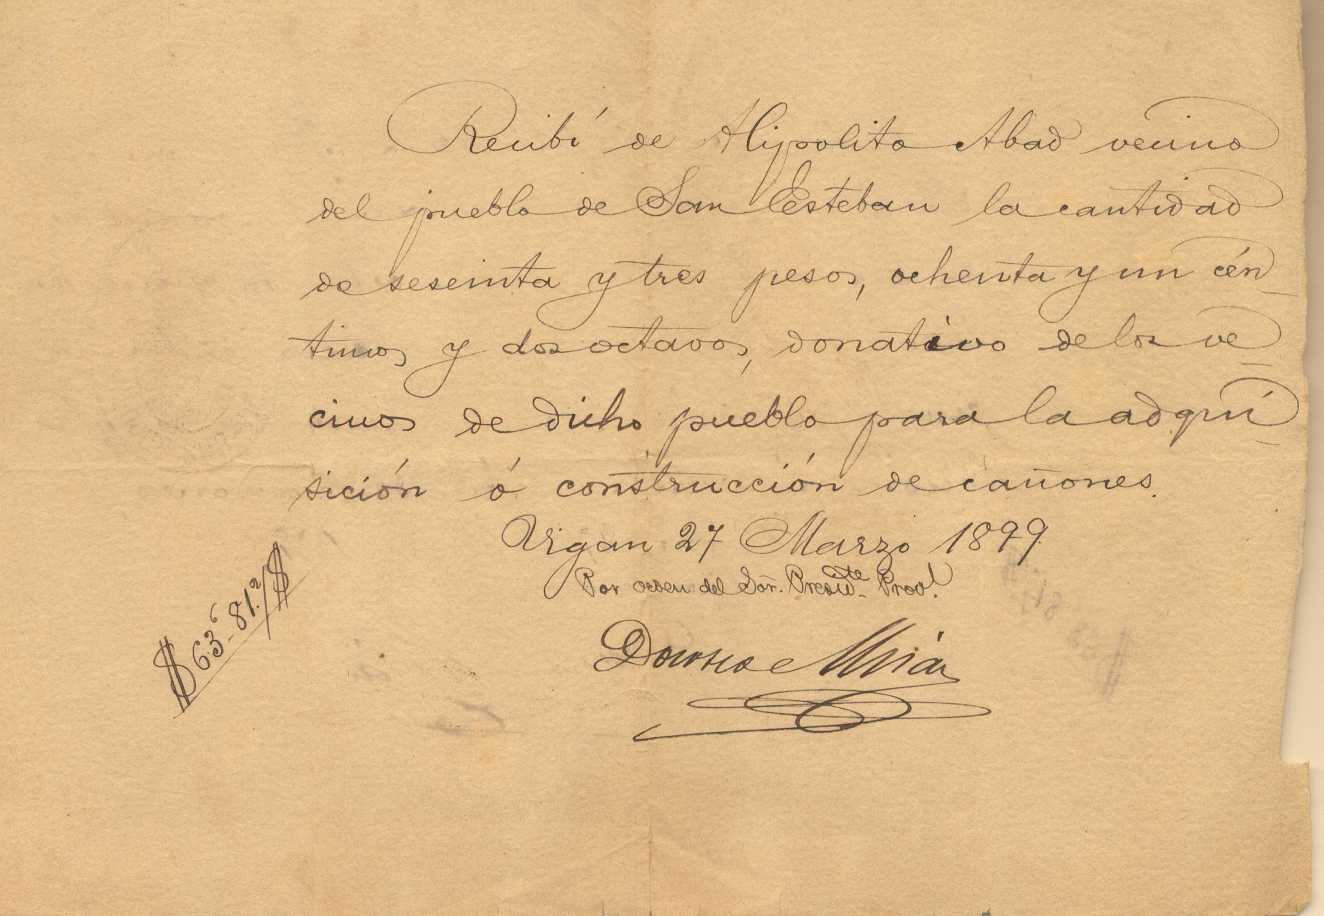 Recibí de Hipolito Abad vecino
del pueblo de San Esteban la cantidad
de seseinta y tres pesos, ochenta y un cén
timos y dos octavos, donativo de los ve
cinos de dicho pueblo para la adqui
sición ó construcción de cañones.
Vigan 27 Marzo 1899
Por orden del Sor. Presidte. Provl.
$ 63 - 81 2/8